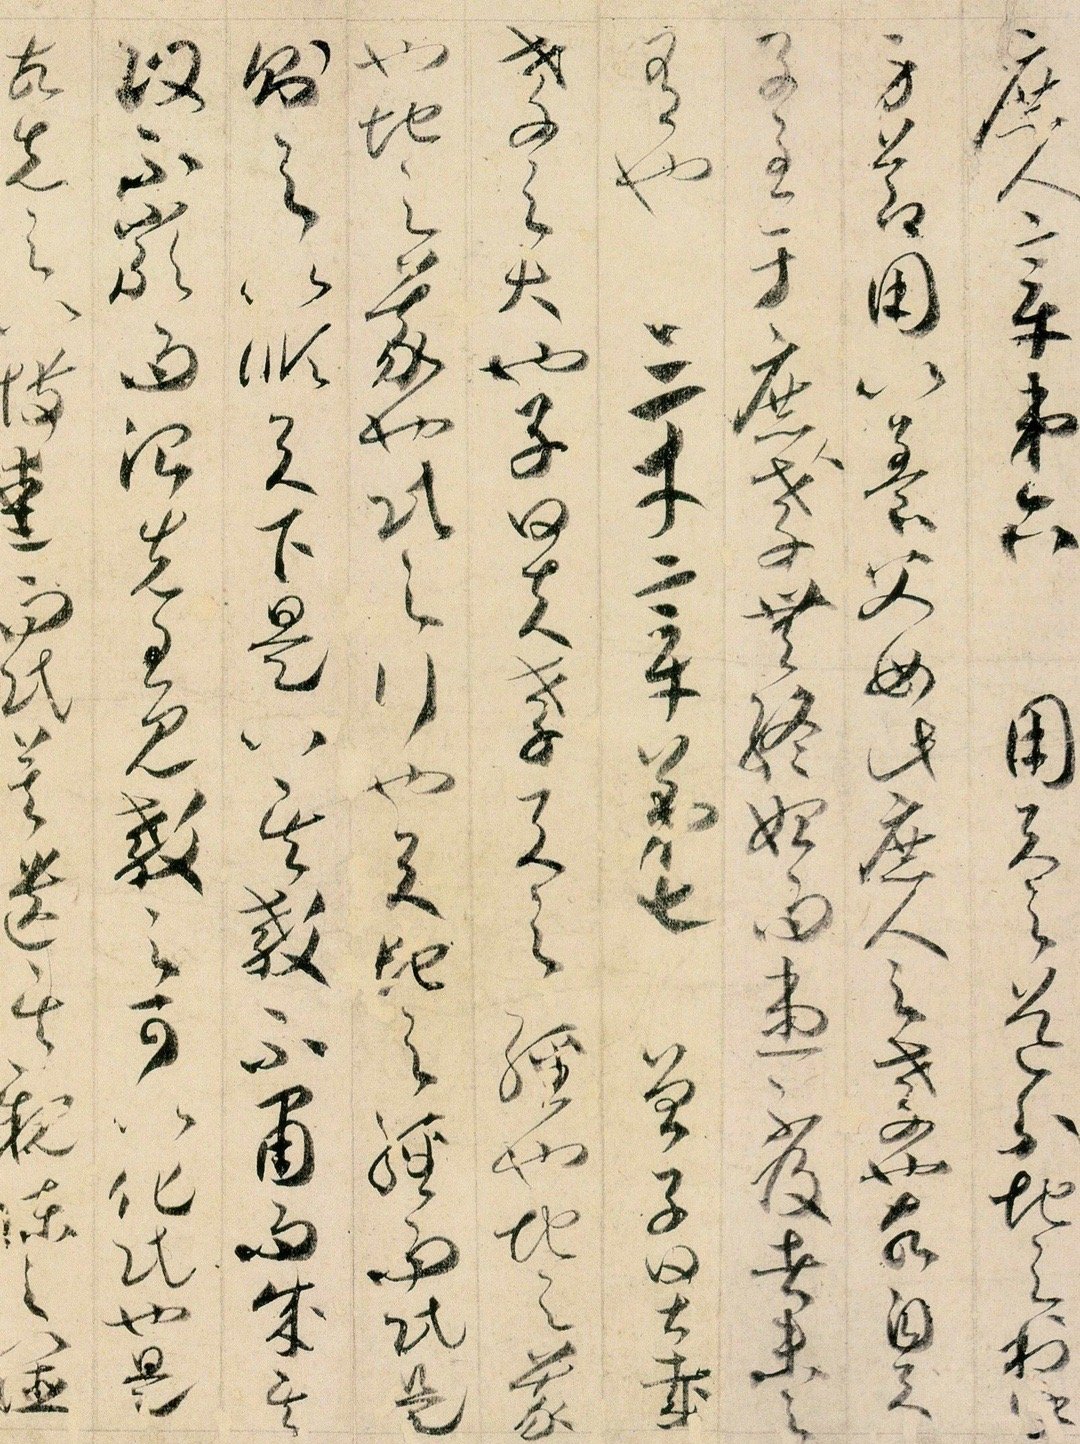 庶人章第六　用天之道分地之利謹
身節用以養父母此庶人之孝也故自天
子至于庶孝無終始而患不及者未之
有也　三才章第七　曾子曰甚哉
孝之大也子曰夫孝天之經也地之義
也地之義也民之行也天地之經而民是
則之以順天下是以其教不肅而成其
政不嚴而治先王見教之可以化民也是
故先之以博愛而民莫遺其親陳之以德